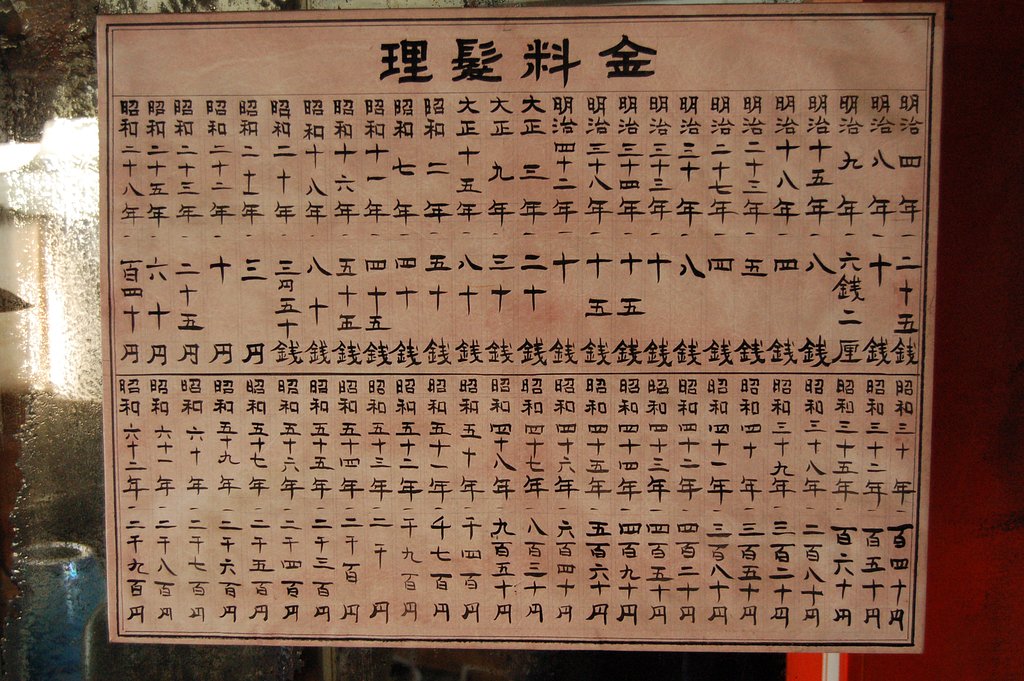 理髪料金
明治四年-二十五銭
明治八年-十銭
明治九年-六銭二厘
明治十五年-八銭
明治十八年-四銭
明治二十三年-五銭
明治二十七年-四銭
明治三十年-八銭
明治三十三年-十銭
明治三十四年-十五銭
明治三十八年-十五銭
明治四十二年-十銭
大正三年-二十銭
大正九年-三十銭
大正十五年-八十銭
昭和二年-五十銭
昭和七年-四十銭
昭和十一年-四十五銭
昭和十六年-五十五銭
昭和十八年-八十銭
昭和二十年-三円五十銭
昭和二十一年-三円
昭和二十二年-十円
昭和二十三年-二十五円
昭和二十五年-六十円
昭和二十八年-百四十円
昭和三十年-百四十円
昭和三十二年-百五十円
昭和三十五年-百六十円
昭和三十八年-二百八十円
昭和三十九年-三百二十円
昭和四十年-三百五十円
昭和四十一年-三百八十円
昭和四十二年-四百二十円
昭和四十三年-四百五十円
昭和四十四年-四百九十円
昭和四十五年-五百六十円
昭和四十六年-六百四十円
昭和四十七年-八百三十円
昭和四十八年-九百五十円
昭和五十年-千四百円
昭和五十一年-千七百円
昭和五十二年-千九百円
昭和五十三年-二千円
昭和五十四年-二千百円
昭和五十五年-二千三百円
昭和五十六年-二千四百円
昭和五十七年-二千五百円
昭和五十九年-二千六百円
昭和六十年-二千七百円
昭和六十一年-二千八百円
昭和六十二年-二千九百円